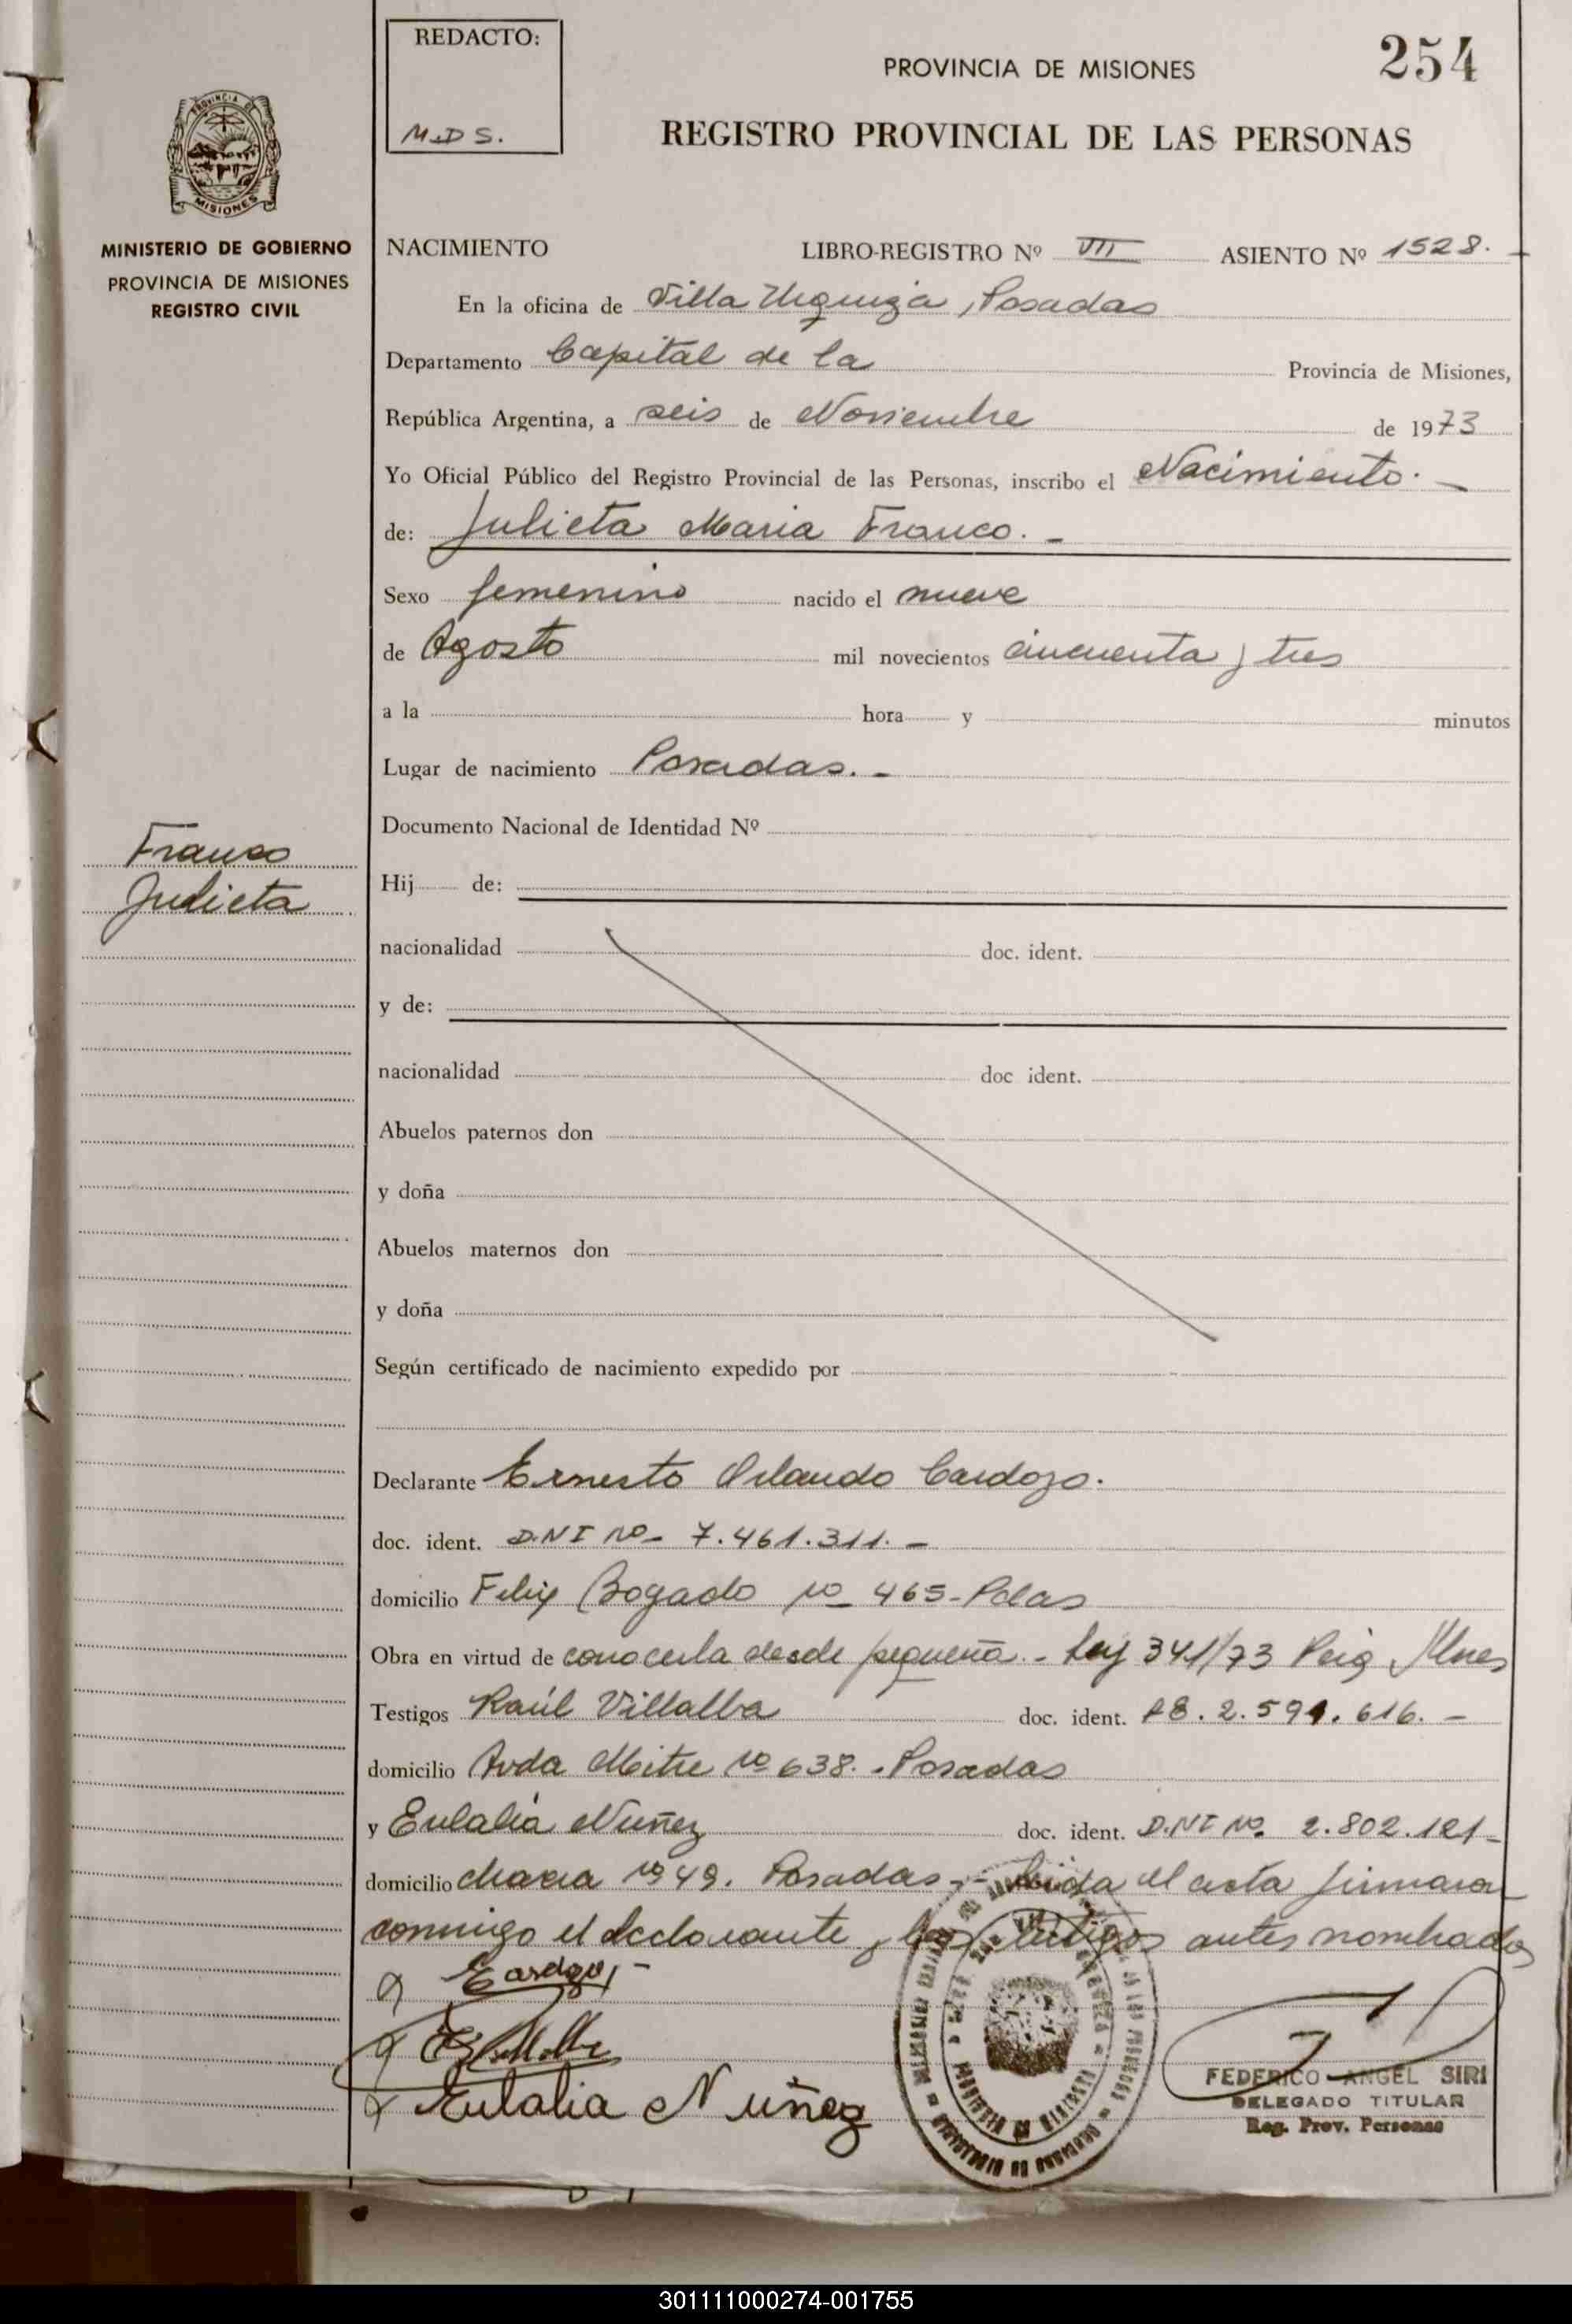 REDACTO:
M.D S.
PROVINCIA DE MISIONES
254
REGISTRO PROVINCIAL DE LAS PERSONAS
PROVINCIA DE
MISIONES
MINISTERIO DE GOBIERNO
PROVINCIA DE MISIONES
REGISTRO CIVIL
NACIMIENTO LIBRO-REGISTRO Nº VII ASIENTO Nº 1528.
En la oficina de Villa Urquiza, Posadas
Departamento Capital de la Provincia de Misiones,
República Argentina, a seis de Noviembre de 1973
Yo Oficial Público del Registro Provincial de las Personas, inscribo el Nacimiento. -
de: Julieta Maria Franco. -
Sexo femenino nacido el nueve
de Agosto mil novecientos cincuenta y tres
a la hora y minutos
Lugar de nacimiento Posadas. -
Documento Nacional de Identidad Nº
Franco
Julieta
Hij de:
nacionalidad doc. ident.
y de:
nacionalidad doc ident.
Abuelos paternos don
y doña
Abuelos maternos don
y doña
Según certificado de nacimiento expedido por
Declarante Ernesto Orlando Cardozo.
doc. ident. D.N I Nº - 7.461.311. -
domicilio Felix Bogado Nº 465 - Pdas
Obra en virtud de conocerla desde pequeña. - Ley 341/73
Testigos Raúl Villalba doc. ident. 2.591.616. -
domicilio Avda Mitre Nº 638. - Posadas
y Eulalia Nuñez doc. ident. D.N I Nº. 2.802.121 -
domicilio chacra Nº 49. Posadas - Leida el acta firmaron
conmigo el declarante y los testigos antes nombrados
Cardozo
Eulalia Nuñez
FEDERICO ANGEL SIRI
DELEGADO TITULAR
Reg. Prov. Personas
301111000274-001755